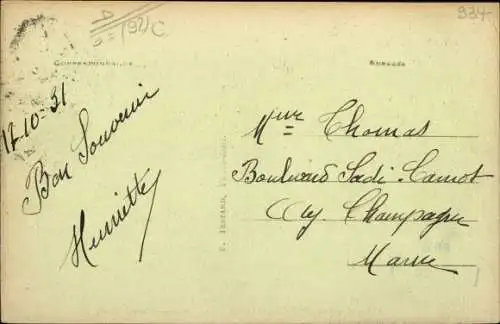 934
CORRESPONDANCE
ADRESSE
17-10-31
Bon Souvenir
Henriette
Mme Thomas
Boulevard Sadi Carnot
Ay Champagne
Marne